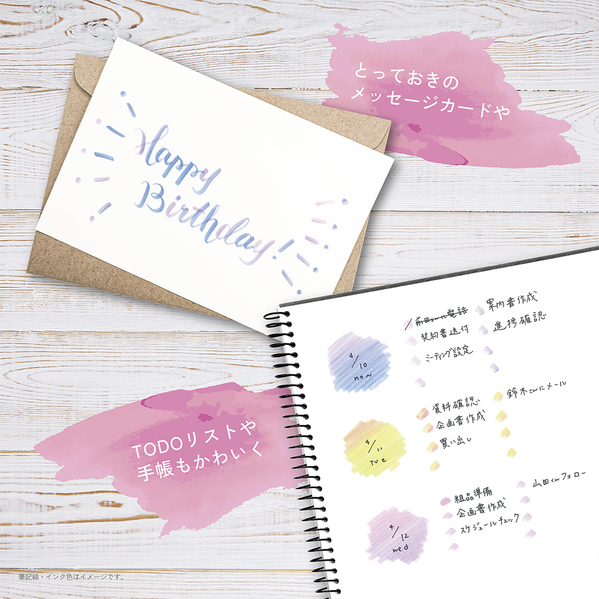 とっておきの
メッセージカードや
Happy
Birthday!
TODOリストや
手帳もかわいく
4/10
mon
前田さんに電話
契約書送付
ミーティング設定
案内書作成
進捗確認
4/11
tue
資料確認
企画書作成
買い出し
鈴木さんにメール
4/12
wed
粗品準備
企画書作成
スケジュールチェック
山田くんフォロー
筆記線・インク色はイメージです。